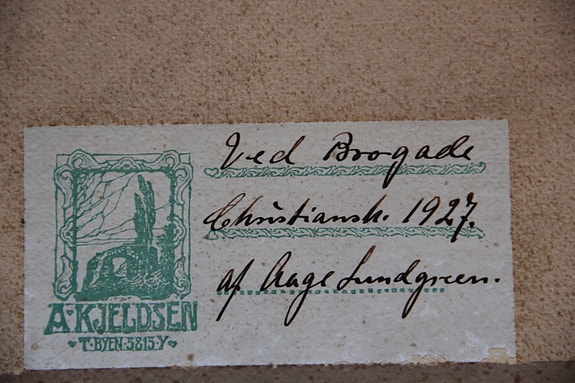 Ved Brogade
Christiansh. 1927.
af Aage Lundgreen.
A·KJELDSEN
T·BYEN·5815·Y